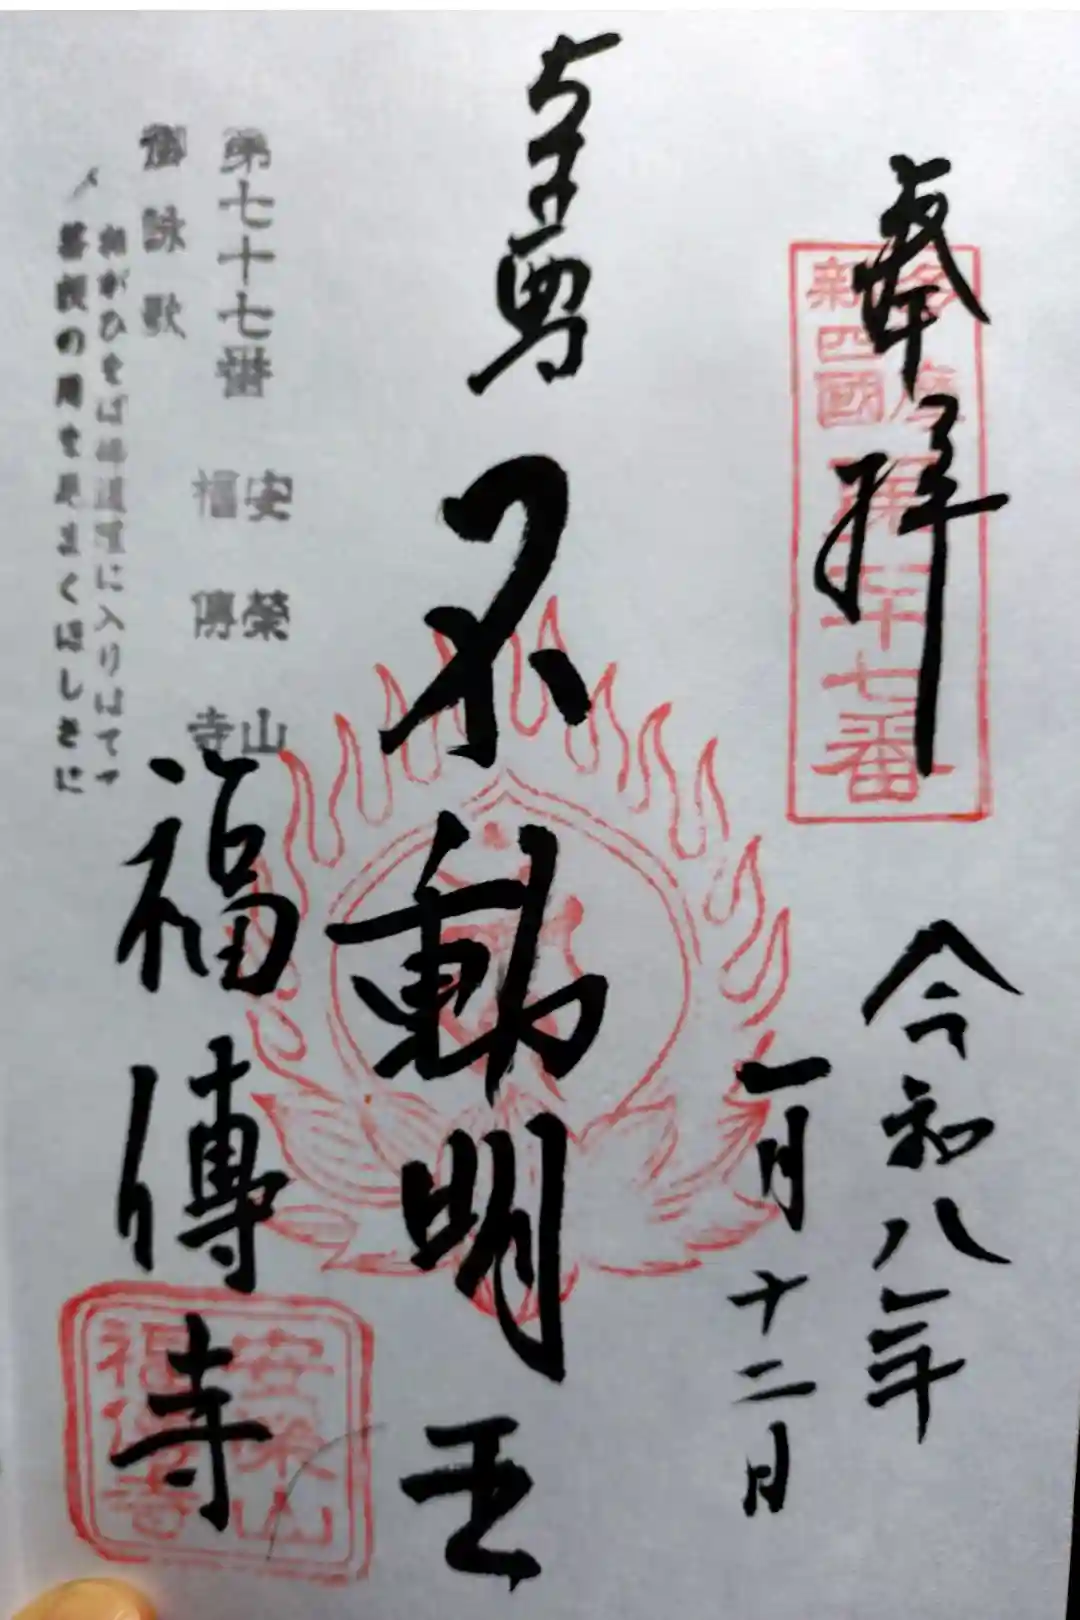 奉拝
多摩
新四國
第七十七番
令和八年
一月十二日
不動明王
第七十七番
安榮山
福傳寺
御詠歌
ねがひをば佛道隆に入りはてて
菩提の月を見まくほしさに
福傳寺
安榮山
福傳寺